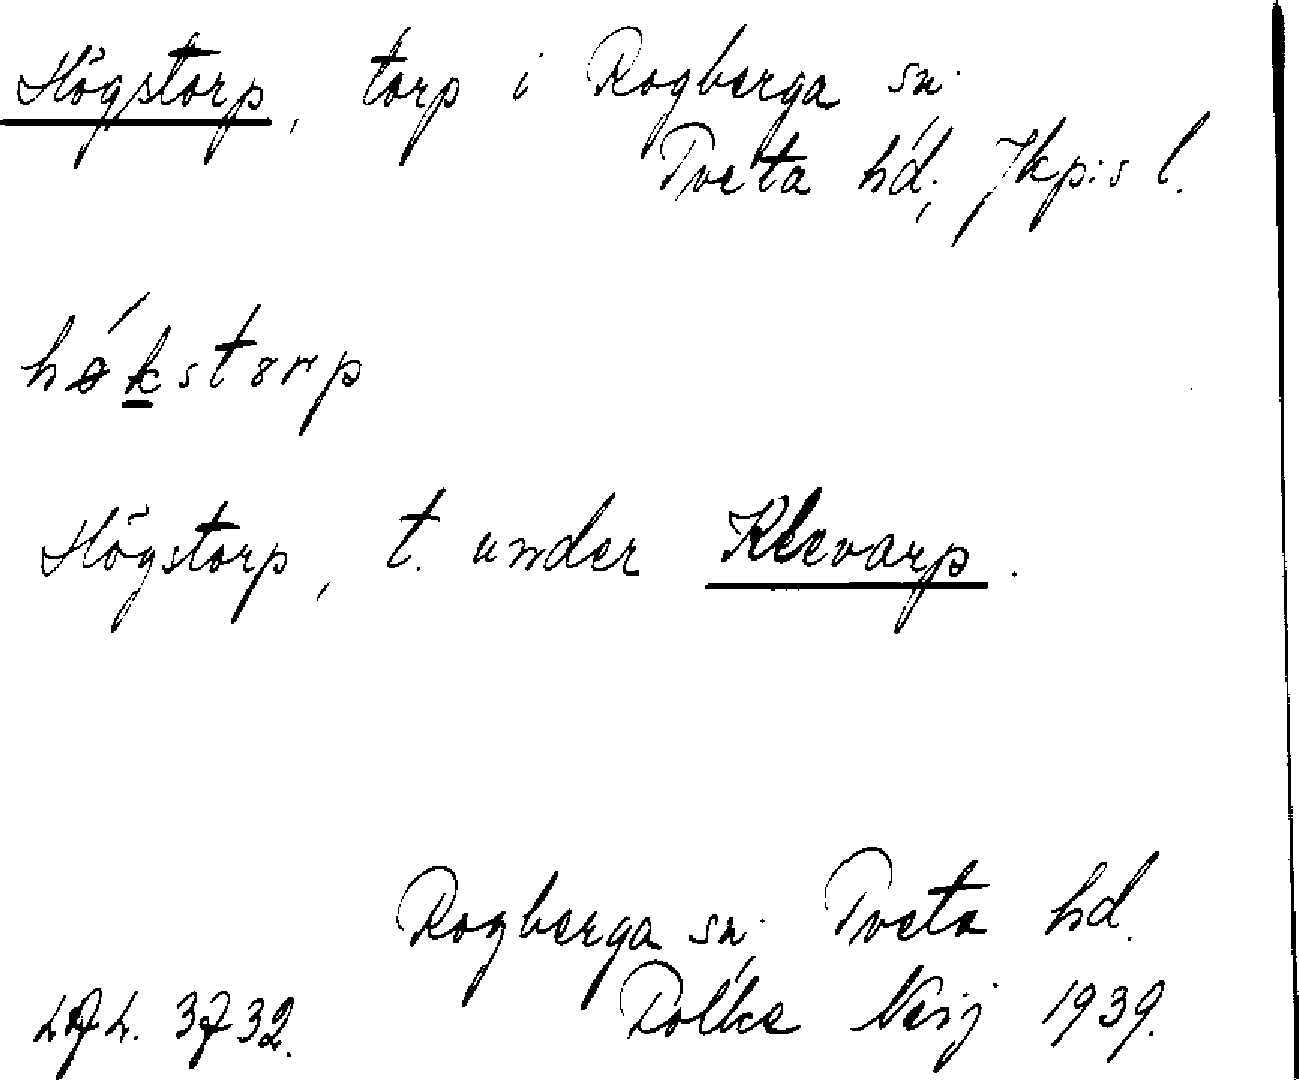 Högstorp, torp i Rogberga sn.
Tveta hd; Jkp:s l.
høkstorp
Högstorp, t. under Klevarp.
Rogberga sn; Tveta hd.
3732. 1939.